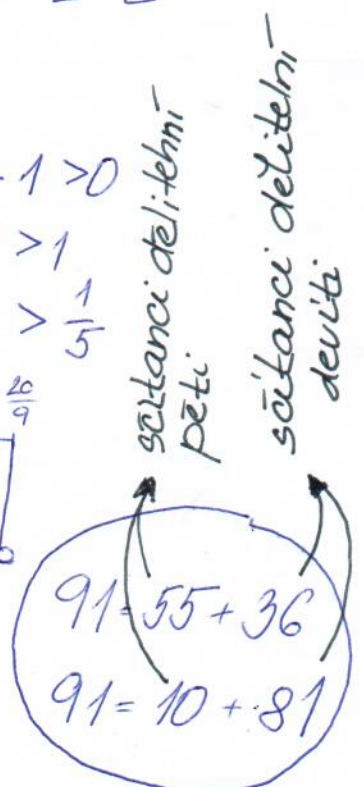 1 > 0
> 1
> 1/5
20/9
sčítanci dělitelní
pěti
sčítanci dělitelní
devíti
91 = 55 + 36
91 = 10 + 81